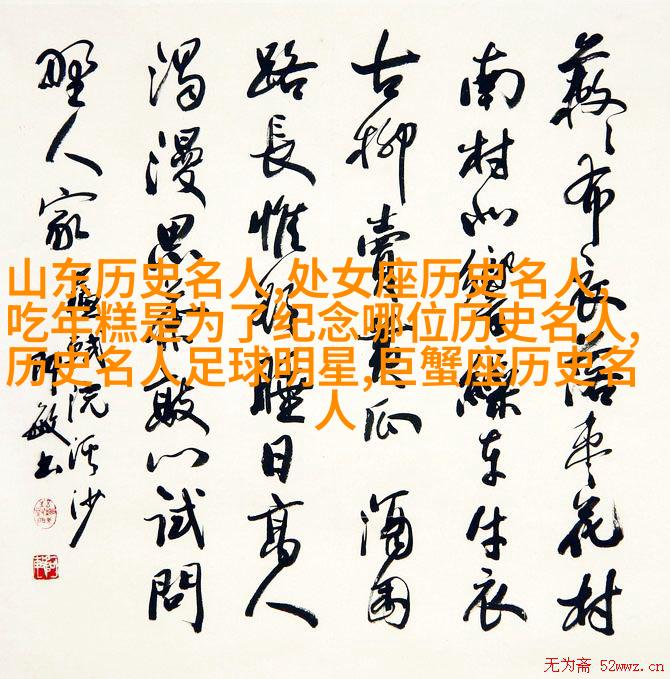 蔌々衣落枣花村
南村北响繰车牛衣
古柳賣黄瓜 酒困
路長惟欲睡日高人
渴漫思茶敲门试問
野人家 蘇軾浣溪沙
敏书
山东历史名人,处女座历史名人,
吃年糕是为了纪念哪位历史名人,
历史名人足球明星,巨蟹座历史名
人
无为斋 52wwz.cn